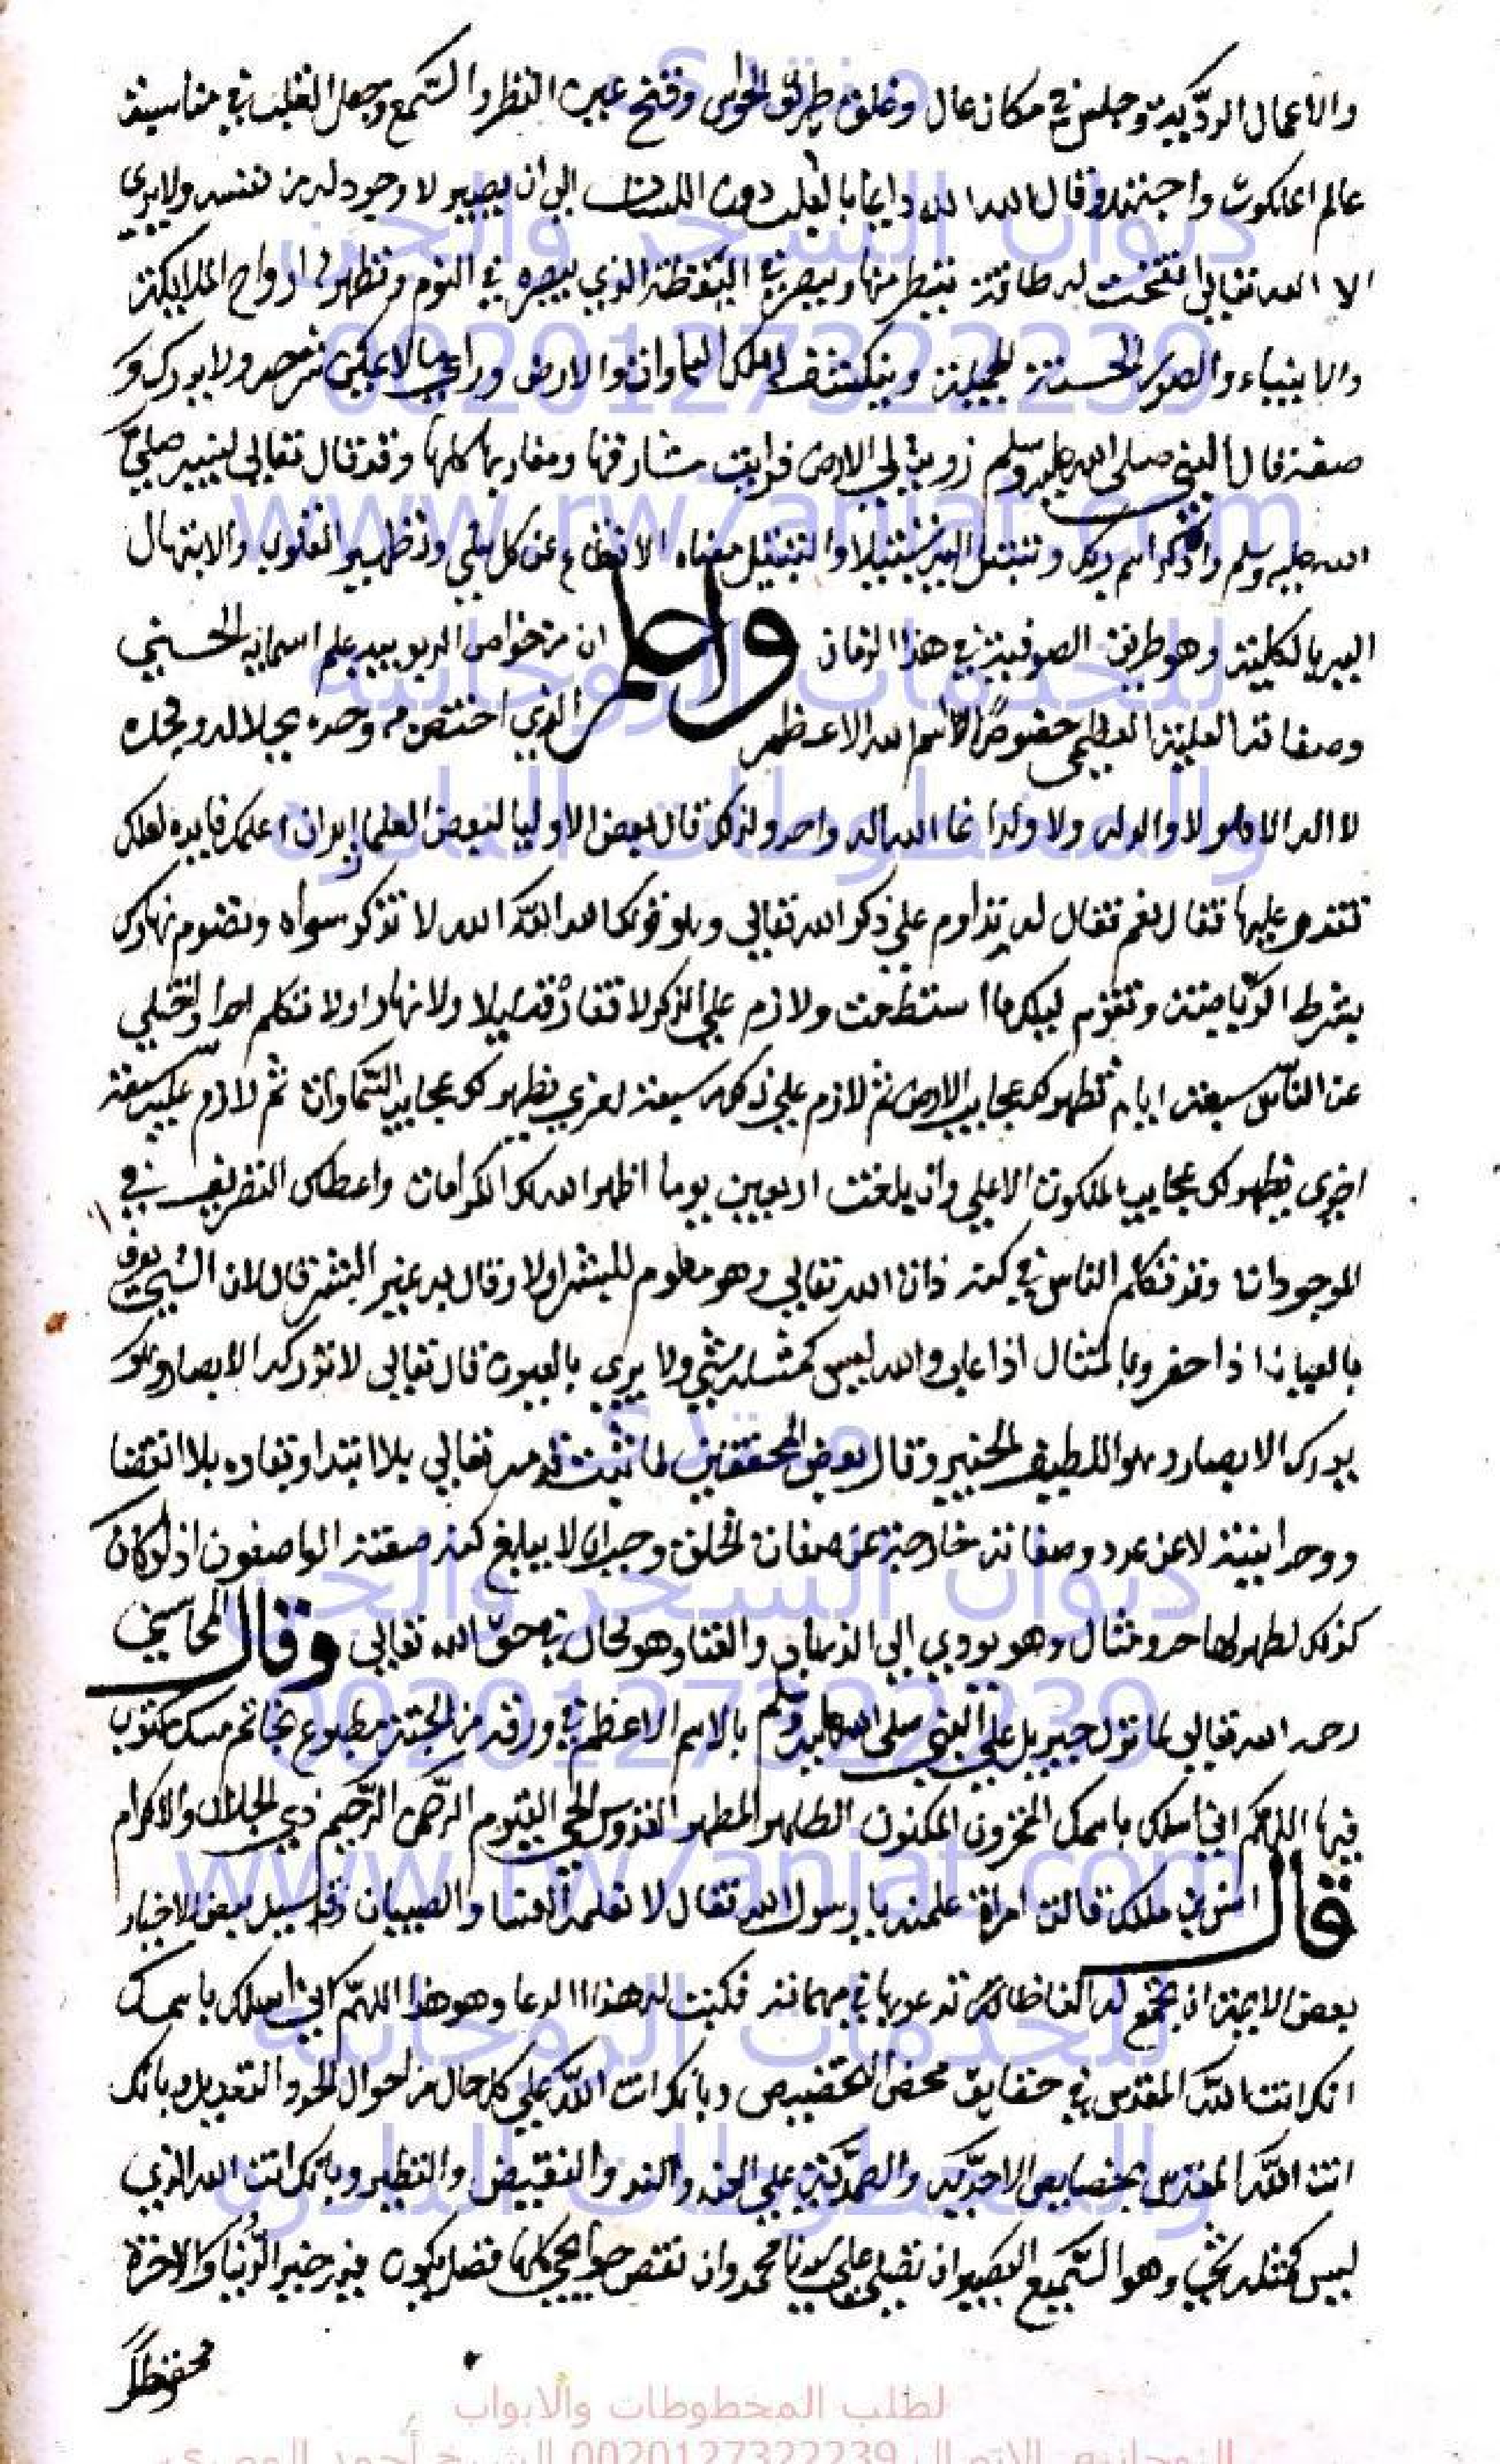 والاعمال الرديه وجلس في مكان عال وغلق طريق الحواس وفتح عين النظر والسمع وجعل القلب في مناسبة
عالم الملكوت وقال الله الله دايما بالقلب دون اللسان الي ان يصير لا وجود له من نفسه ولا يري
الا الله تعالي انفتحت له طاقة ينظر منها ويبصر في اليقظة الذي يبصره في النوم وتظهر له ارواح الملايكة
والانبياء والصور الحسنة الجميلة وينكشف له ملك السماوات والارض وراي ما لا يمكن شرحه ولا يدرك
صفته قال النبي صلى الله عليه وسلم زويت لي الارض فرايت مشارقها ومغاربها كلها وقد قال تعالي لنبيه صلي
الله عليه وسلم واذكر اسم ربك وتبتل اليه تبتيلا والتبتيل معناه الانقطاع عن كل شي وتطهير القلوب والابتهال
اليه بالكلية وهو طريق الصوفية في هذا الزمان واعلم ان من خواص الربوبية علم اسمايه الحسني
وصفاته العلية العظمي خصوصا الاسم الله الاعظم الذي اختص به وحده بجلاله ومجده
لا اله الا هو لا والد له ولا ولد انما الله اله واحد ولذلك قال بعض الاوليا لبعض العلما اتريد ان اعلمك فايده لعلك
تقدم عليها فقال نعم فقال له تداوم علي ذكر الله تعالي وهو قولك الله الله الله لا تذكر سواه وتصوم نهارك
بشرط الرياضة وتقوم ليلك ما استطعت ولازم علي الذكر لا تفارقه ليلا ولا نهارا ولا تكلم احدا واختلي
عن الناس سبعة ايام تظهر لك عجايب الارض ثم لازم علي ذكره سبعة اخري يظهر لك عجايب السماوات ثم لازم عليه سبعة
اخري يظهر لك عجايب الملكوت الاعلي وان بلغت اربعين يوما اظهر الله لك الكرامات واعطاك التصريف في
الموجودات وقد تكلم الناس في كنه ذات الله تعالي وهو معلوم للبشر اولا وقال به غير البشر قال لان الشي يعرف
بالعيان اذا حضر وبالمثال اذا غاب والله ليس كمثله شي ولا يري بالعيون قال تعالي لا تدركه الابصار وهو
يدرك الابصار وهو اللطيف الخبير وقال بعض المحققين لما ثبت قدمه تعالي بلا ابتدا وبقاوه بلا انقضا
ووحدانيته لا عن عدد وصفاته خارجة عن صفات الخلق وجب ان لا يبلغ كنه صفته الواصفون اذ لو كان
كذلك لظهر لها حد ومثال وهو يودي الي الذهاب والفنا وهو محال في حق الله تعالي وقال المحاسبي
رحمه الله تعالي لما نزل جبريل علي النبي صلى الله عليه وسلم بالاسم الاعظم في ورقة من الجنة مطبوع بخاتم مسك مكتوب
فيها اللهم اني اسلك باسمك المخزون المكنون الطاهر المطهر القدوس الحي القيوم الرحمن الرحيم ذي الجلال والاكرام
قال انس بن مالك قالت امراة علمنيه يا رسول الله فقال لا تعلمه النسا والصبيان وقد سيل بعض الاخيار
بعض الايمة ان يجمع له الفاظا لكي تدعو بها في مهماته فكتبت له هذا الدعا وهو هذا اللهم اني اسلك باسمك
انك انت الله المقدس في حقايق محض التخصيص وبانك انت الله علي كل حال من احوال الحد والتعديد وبانك
انت الله المقدس بخصايص الاحديه والصمديه علي الضد والند والنقيض والنظير وبانك انت الله الذي
ليس كمثله شي وهو السميع البصير ان تصلي علي سيدنا محمد وان تقض حوايجي كلها فضلا يكون فيه خير الدنيا والاخرة
محفوظا
منتدى
ديوان السحر والجن
0020127322239
www.rw7anjat.com
للخدمات الروحانية
والمخطوطات النادره
منتدى
ديوان السحر والجن
0020127322239
www.rw7anjat.com
للخدمات الروحانية
والمخطوطات النادره
لطلب المخطوطات والابواب
الروحانيه الاتصال 0020127322239 الشيخ أحمد المصري